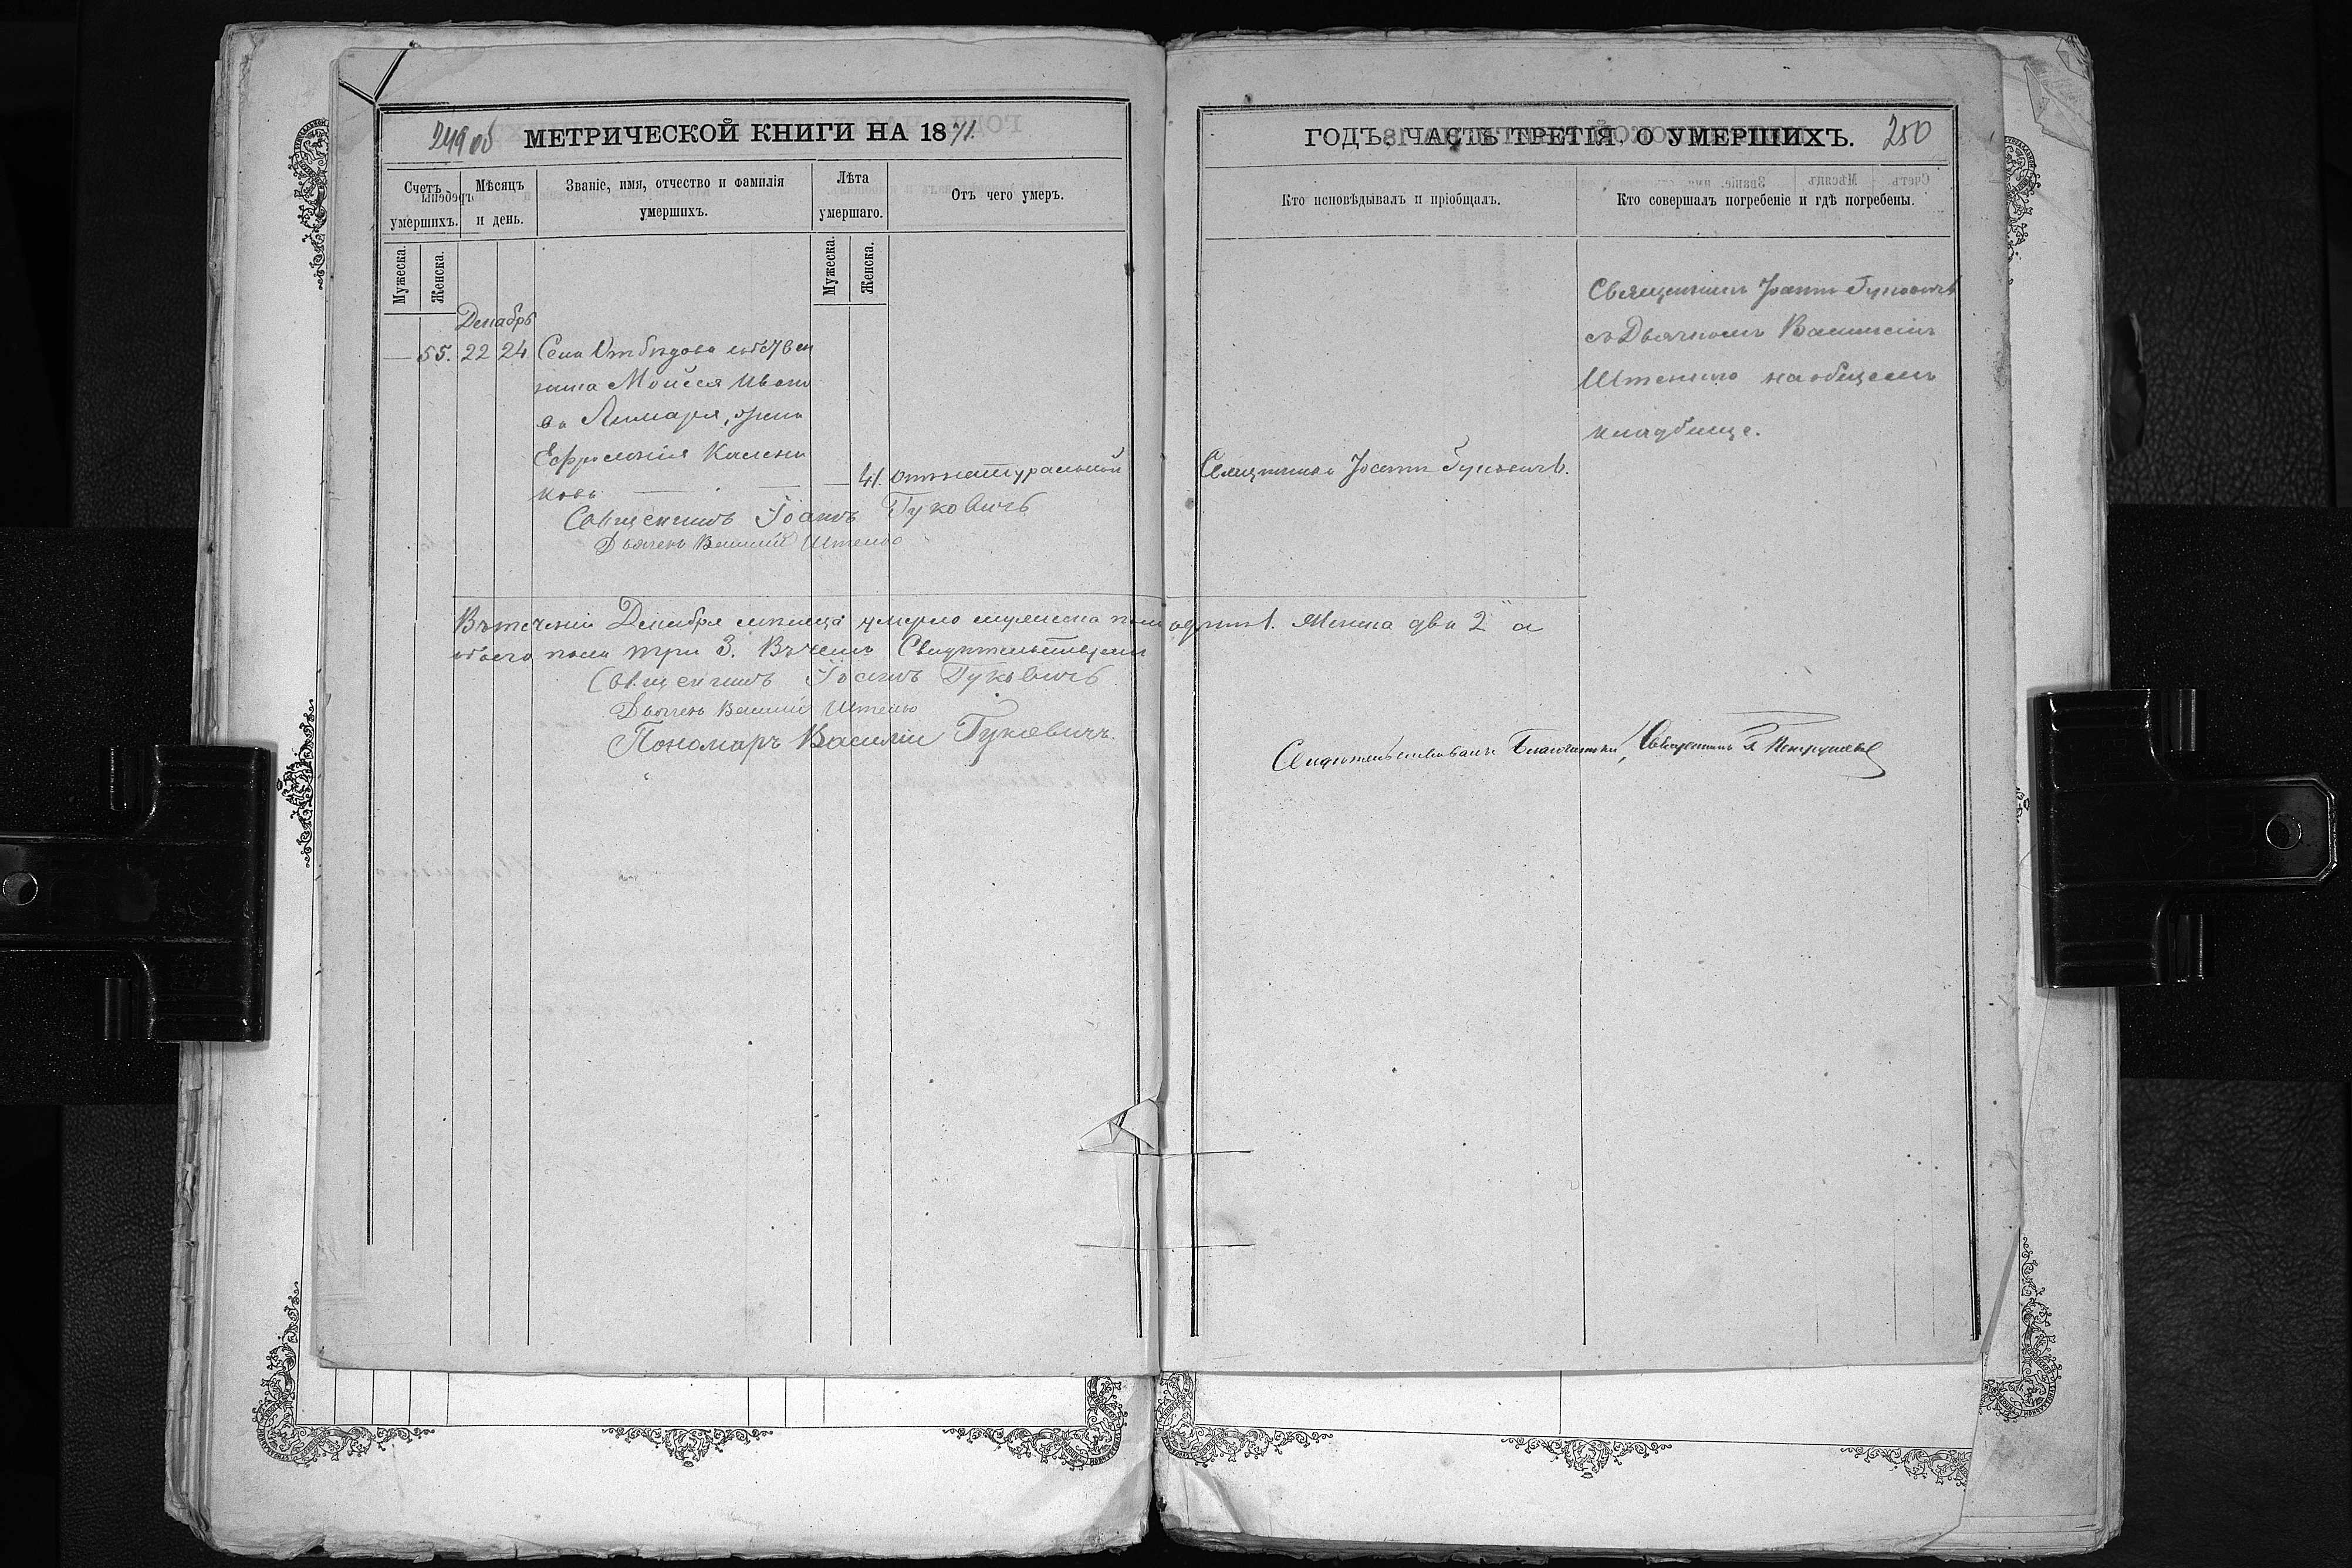 249 об МЕТРИЧЕСКОЙ КНИГИ НА 1871.
Счетъ умершихъ.
Мѣсяцъ и день.
Званіе, имя, отчество и фамилія умершихъ.
Лѣта умершаго.
Отъ чего умеръ.
Мужеска.
Женска.
Мужеска.
Женска.
Декабрь
— 55. 22 24 Села
Мойсея Ивано
ва Лимаря, жена
Калени
кова — — — 41. отъ натуральной
Священникъ Іоаннъ Гуковичъ
Дьячекъ Василій Штенко
Въ теченіи Декабря мѣсяца умерло мужеска пола одинъ 1. Женска два 2 а
обоего пола три 3. Въ чемъ Свидѣтельствуемъ
Священникъ Іоаннъ Гуковичъ
Дьячекъ Василій Штенко
Пономарь Василій Гуковичъ.
ГОДЪ, ЧАСТЬ ТРЕТІЯ, О УМЕРШИХЪ. 250
Кто исповѣдывалъ и пріобщалъ.
Кто совершалъ погребеніе и гдѣ погребены.
Священникъ Іоаннъ Гуковичъ
съ Дьячкомъ Василіемъ
Штенкомъ на общемъ
кладбище.
Священникъ Іоаннъ Гуковичъ.
Свидѣтельствовалъ Благочинный, Священникъ